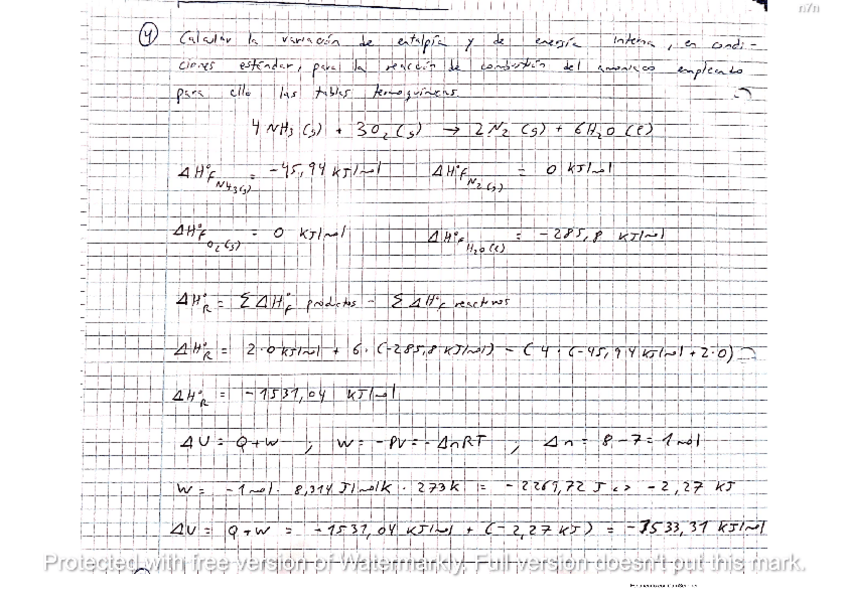 n7n
4) Calcular la variación de entalpía y de energía interna, en condi-
ciones estándar, para la reacción de combustión del amoniaco empleando
para ello las tablas termoquímicas.
4 NH3 (g) + 3O2 (g) → 2N2 (g) + 6H2O (l)
ΔH°f NH3(g) = -45,94 kJ/mol ΔH°f N2(g) = 0 kJ/mol
ΔH°f O2(g) = 0 kJ/mol ΔH°f H2O(l) = -285,8 kJ/mol
ΔH°R = Σ ΔH°f productos - Σ ΔH°f reactivos
ΔH°R = 2·0 kJ/mol + 6·(-285,8 kJ/mol) - (4·(-45,94 kJ/mol + 2·0)
ΔH°R = -1531,04 kJ/mol
ΔU = Q+W ; W = -PV = -ΔnRT ; Δn = 8-7 = 1 mol
W = -1mol · 8,314 J/molK · 273K = -2269,72 J <> -2,27 kJ
ΔU = Q+W = -1531,04 kJ/mol + (-2,27 kJ) = -1533,31 kJ/mol
Protected with free version of Watermarkly. Full version doesn't put this mark.